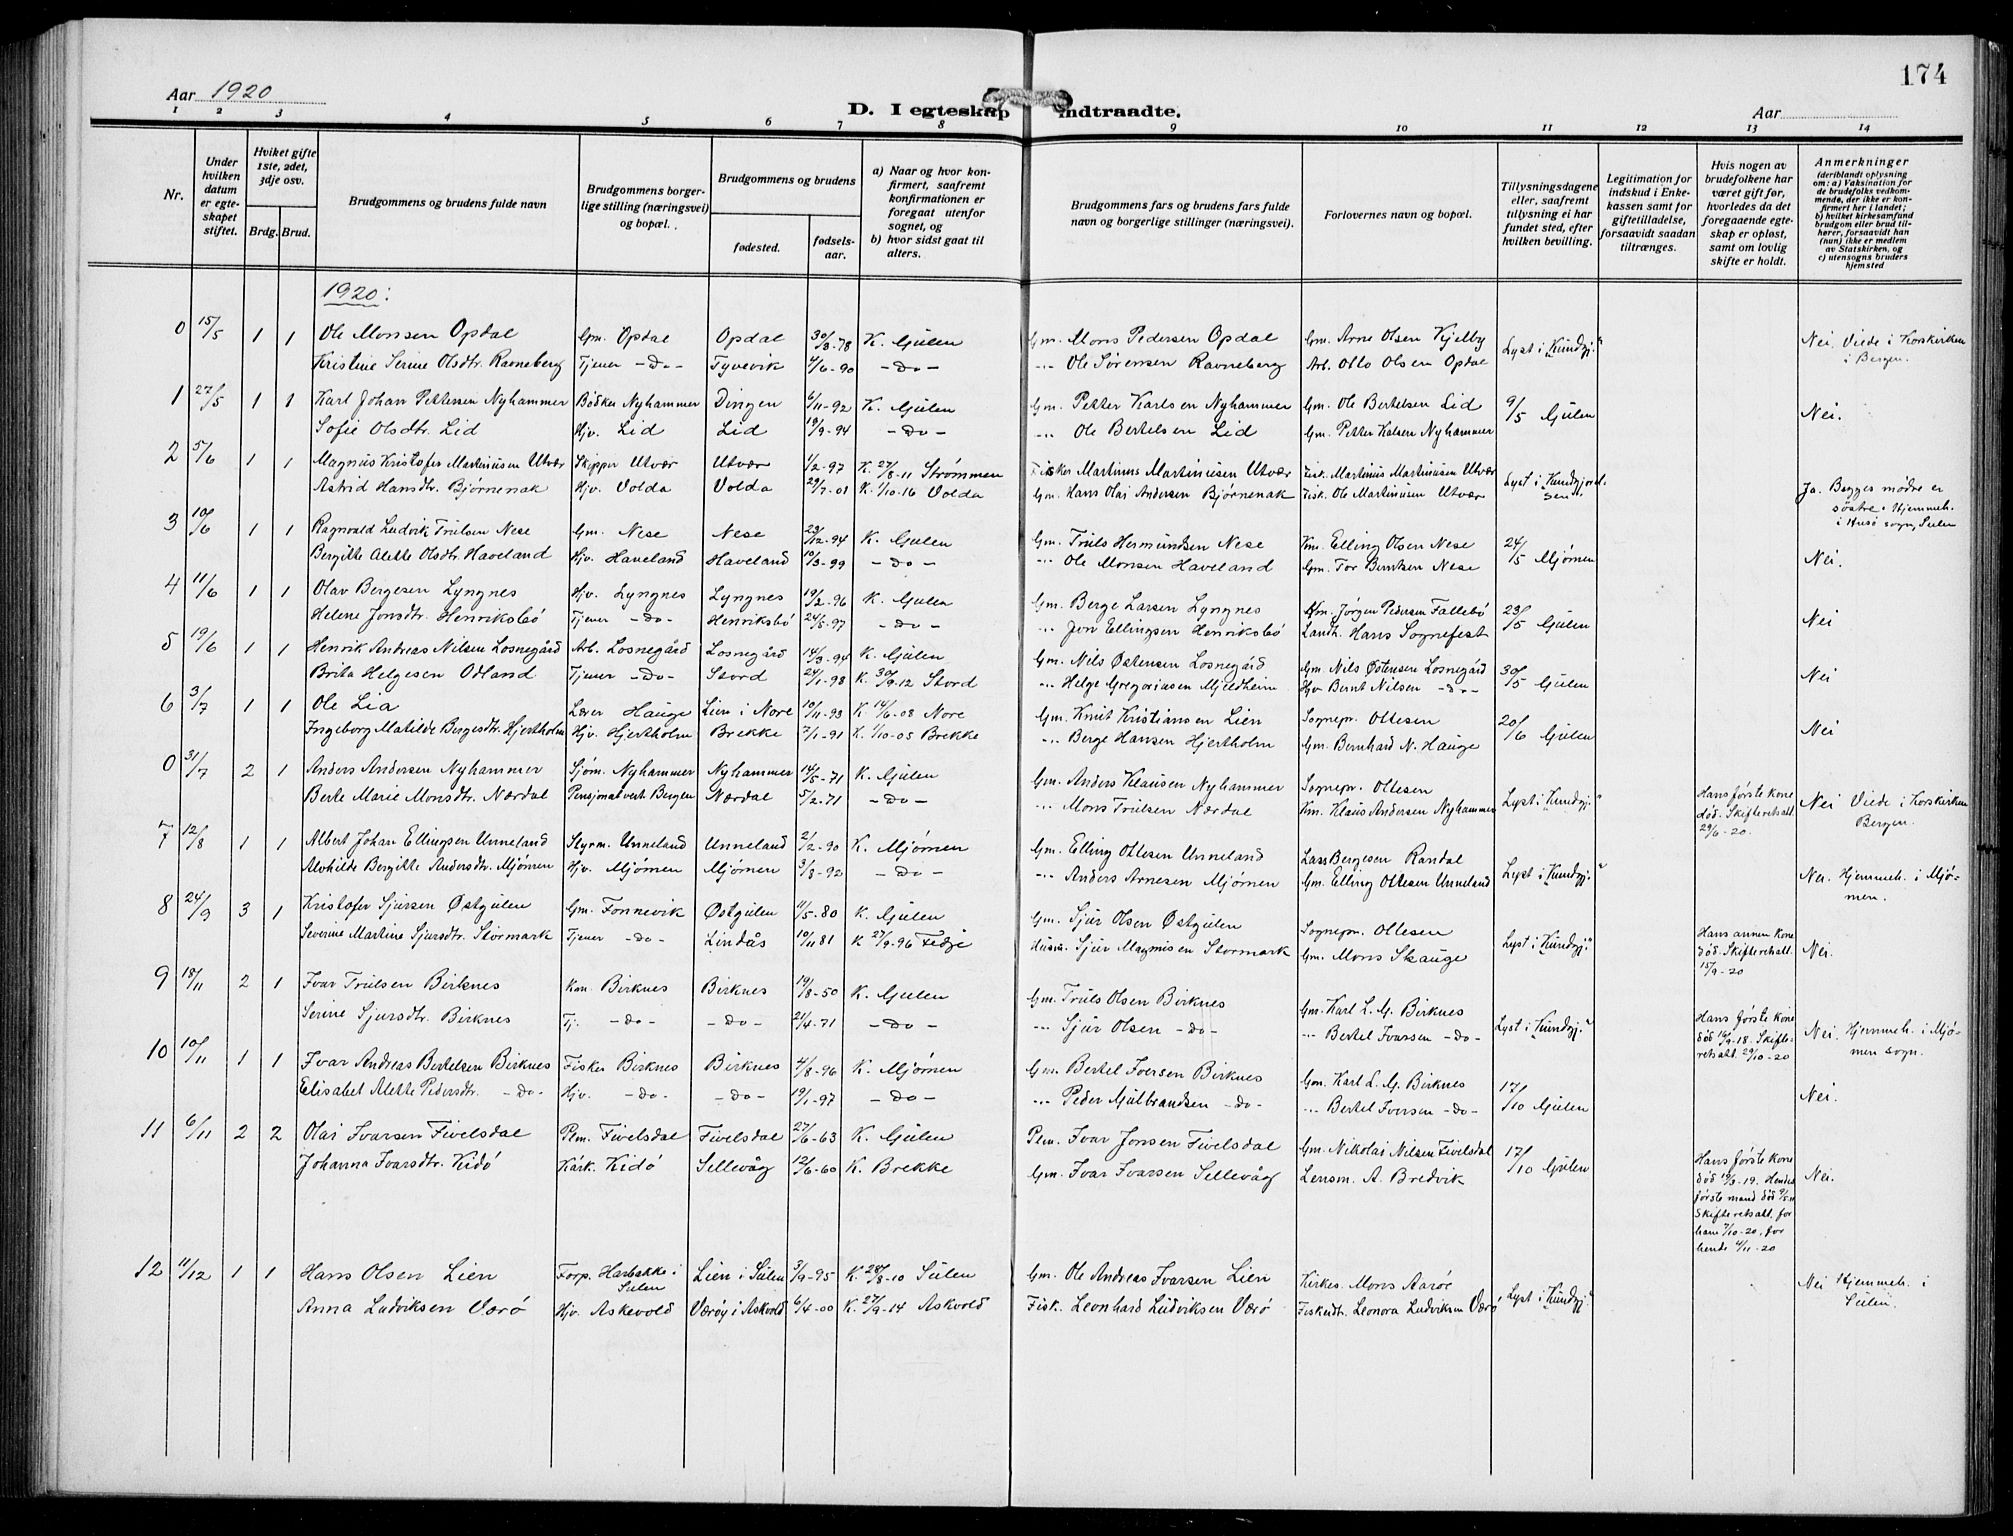 174
Aar 1920
D. I egteskap indtraadte.
Aar
1 2 3 4 5 6 7 8 9 10 11 12 13 14
Nr.
Under hvilken datum er egteskapet stiftet.
Hviket gifte 1ste, 2det, 3dje osv.
Brdg. Brud.
Brudgommens og brudens fulde navn
Brudgommens borgerlige stilling (næringsvei) og bopæl.
Brudgommens og brudens
fødested.
fødselsaar.
a) Naar og hvor konfirmert, saafremt konfirmationen er foregaat utenfor sognet, og
b) hvor sidst gaat til alters.
Brudgommens fars og brudens fars fulde navn og borgerlige stillinger (næringsvei).
Forlovernes navn og bopæl.
Tillysningsdagene eller, saafremt tillysning ei har fundet sted, efter hvilken bevilling.
Legitimation for indskud i Enkekassen samt for giftetilladelse, forsaavidt saadan tiltrænges.
Hvis nogen av brudefolkene har været gift før, hvorledes da det foregaaende egteskap er opløst, samt om lovlig skifte er holdt.
Anmerkninger (deriblandt oplysning om: a) Vaksination for de brudefolks vedkommende, der ikke er konfirmert her i landet; b) hvilket kirkesamfund brudgom eller brud tilhører, forsaavidt han (hun) ikke er medlem av Statskirken, og c) utensogns bruders hjemsted
1920:
0 15/5 1 1 Ole Monsen Opdal Gm. Opdal Opdal 30/3-78 K. Gulen Gm. Mons Pedersen Opdal Gm. Arne Olsen Kjelby Lyst i "Kundgj." Nei. Viede i Korskirken i Bergen.
Kristine Serine Olsdtr. Ravneberg Tjener -Do- Tyvevik 4/6-90 -Do- -"- Ole Sørensen Ravneberg Arb. Otto Olsen Opdal
1 27/5 1 1 Karl Johan Pettersen Nyhammer Bødker Nyhammer Dingen 6/11-92 K. Gulen Gm. Petter Karlsen Nyhammer Gm. Ole Bertelsen Lid 9/5 Gulen Nei.
Sofie Olsdtr. Lid Hjv. Lid Lid 19/9-94 -Do- -"- Ole Bertelsen Lid Gm. Petter Kalsen Nyhammer
2 5/6 1 1 Magnus Kristofer Martinusen Utvær Skipper Utvær Utvær 1/2-97 K. 27/8-11 Strømmen Fisker Martinus Martinusen Utvær Fisk. Martinus Martinusen Utvær Lyst i "Kundgjørelsen". Ja. Begges mødre er søstre. Hjemmeh. i Husø sogn, Sulen
Astrid Hansdtr. Bjørnenak Hjv. Volda Volda 29/7-01 K. 1/10-16 Volda Gm. Hans Olai Andersen Bjørnenak Fisk. Ole Martinusen Utvær
3 10/6 1 1 Ragnvald Ludvik Trulsen Nese Gm. Nese Nese 23/12-94 K. Gulen Gm. Truls Hermundsen Nese Km. Elling Olsen Nese 24/5 Mjømen Nei.
Bergitte Alette Olsdtr. Haveland Hjv. Haveland Haveland 10/3-99 -Do- -"- Ole Monsen Haveland Gm. Tor Berntsen Nese
4 11/6 1 1 Olav Bergesen Lyngnes Hjv. Lyngnes Lyngnes 19/2-96 K. Gulen Gm. Berge Larsen Lyngnes Gm. Jørgen Pedersen Fallebø 23/5 Gulen Nei
Helene Jonsdtr. Henriksbø Tjener -Do- Henriksbø 24/5-97 -Do- -"- Jon Ellingsen Henriksbø Landh. Hans Sognefest
5 19/6 1 1 Henrik Andreas Nilsen Losnegård Arb. Losnegård Losnegård 14/3-94 K. Gulen Gm. Nils Østensen Losnegård Gm. Nils Østensen Losnegård 30/5 Gulen Nei
Brita Helgesen Odland Tjener -Do- Stord 24/1-98 K. 30/9-12 Stord -"- Helge Gregoriusen Mjeldheim Hjv Bernt Nilsen -Do-
6 3/7 1 1 Ole Lia Lærer Hauge Lien i Nore 10/11-93 K 14/6-08 Nore Gm. Knut Kristiansen Lien Sognepr. Ottesen 20/6 Gulen Nei
Ingeborg Matilde Bergesdtr. Hjertholm Hjv. Hjertholm Brekke 7/1-91 K. 1/10-05 Brekke -"- Berge Hansen Hjertholm Gm. Bernhard N. Hauge
0 31/7 2 1 Anders Andersen Nyhammer Sjøm. Nyhammer Nyhammer 14/5-71 K. Gulen Gm. Anders Klausen Nyhammer Sognepr. Ottesen Lyst i "Kundgj." Hans første kone død. Skifteretsatt. 29/6-20. Nei Viede i Korskirken Bergen.
Berte Marie Monsdtr. Nærdal Pensjonatvert. Bergen Nærdal 5/2-71 -Do- -"- Mons Trulsen Nærdal Km. Klaus Andersen Nyhammer
7 12/8 1 1 Albert Johan Ellingsen Unneland Styrm. Unneland Unneland 2/2-90 K. Mjømen Gm. Elling Ottesen Unneland Lars Bergesen Randal Lyst i "Kundgj." Nei. Hjemmeh. i Mjømen.
Alvhilde Bergitte Andersdtr. Mjømen Hjv. Mjømen Mjømen 3/8-92 -Do- -"- Anders Arnesen Mjømen Gm. Elling Ottesen Unneland
8 24/9 3 1 Kristofer Sjursen Østgulen Gm. Fonnevik Østgulen 11/5-80 K. Gulen Gm. Sjur Olsen Østgulen Sognepr. Ottesen Lyst i "Kundgj." Hans annen kone død. Skifteretsatt. 15/9-20 Nei.
Severine Martine Sjursdtr. Stormark Tjener -Do- Lindås 10/11 81 K 27/9-96 Fedje Husm. Sjur Magnusen Stormark Gm. Mons Skauge
9 18/11 2 1 Ivar Trulsen Birknes Kan. Birknes Birknes 19/8-50 K. Gulen Gm. Truls Olsen Birknes Gm. Karl L. G. Birknes Lyst i "Kundgj." Hans første kone død 14/9-18. Skifteretsatt. 29/10-20 Nei. Hjemmeh. i Mjømen sogn.
Serine Sjursdtr. Birknes Tj. -Do- -Do- 21/4-71 -Do- -"- Sjur Olsen -Do- -"- Bertel Ivarsen -Do-
10 10/11 1 1 Ivar Andreas Bertelsen Birknes Fisker Birknes Birknes 4/8-96 K. Mjømen Gm. Bertel Iversen Birknes Gm. Karl L. G. Birknes 17/10 Gulen Nei.
Elisabet Mette Pedersdtr. -Do- Hjv. -Do- -Do- 19/1-97 -Do- -"- Peder Gulbrandsen -Do- -"- Bertel Iversen -Do-
11 6/11 2 2 Olai Ivarsen Fivelsdal Pem. Fivelsdal Fivelsdal 27/6-63 K. Gulen Pem. Ivar Jonsen Fivelsdal Gm. Nikolai Nilsen Fivelsdal 17/10 Gulen Hans første kone død 19/3-19. Hendes første mand død 9/5-11 Skifteretsatt. for ham 7/10-20, for hende 4/11-20 Nei.
Johanna Ivarsdtr. Kidø Kårk. Kidø Sellevåg 12/6-60 K. Brekke Gm. Ivar Ivarsen Sellevåg Lensm. A. Bredvik
12 11/12 1 1 Hans Olsen Lien Forp. Harbakke i Sulen Lien i Sulen 3/9-95 K. 28/8-10 Sulen Gm. Ole Andreas Ivarsen Lien Kirkes. Mons Aarøe Lyst i "Kundgj." Nei Hjemmeh. i Sulen.
Anna Ludviksen Værø Hjv. Askevold Værøy i Askvold 6/4-00 K. 27/9-14 Askvold Fisk. Leonhard Ludviksen Værø Fiskerdtr. Leonora Ludviksen Værø